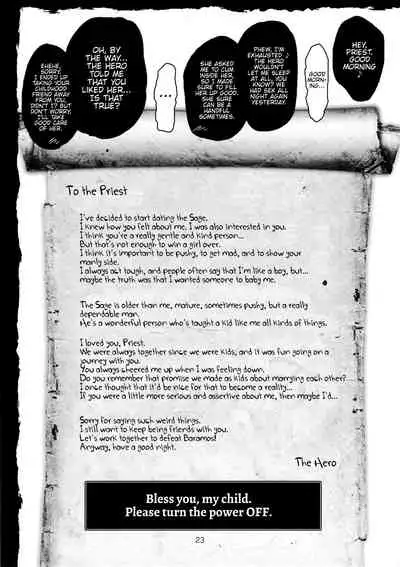 HEY,
PRIEST,
GOOD
MORNING
♪
GOOD
MORN-
ING...
PHEW, I'M
EXHAUSTED ♪
THE HERO
WOULDN'T
LET ME SLEEP
AT ALL, YOU
KNOW? WE
HAD SEX ALL
NIGHT AGAIN
YESTERDAY.
SHE ASKED
ME TO CUM
INSIDE HER,
SO I MADE
SURE TO FILL
HER UP GOOD.
SHE SURE
CAN BE A
HANDFUL
SOMETIMES.
...
OH, BY
THE WAY...
THE HERO
TOLD ME
THAT YOU
LIKED HER...
IS THAT
TRUE?
EHEHE,
SORRY.
I ENDED UP
TAKING YOUR
CHILDHOOD
FRIEND AWAY
FROM YOU,
DIDN'T I? BUT
DON'T WORRY
I'LL TAKE
GOOD CARE
OF HER.
To the Priest
I've decided to start dating the Sage.
I knew how you felt about me. I was also interested in you.
I think you're a really gentle and kind person...
But that's not enough to win a girl over.
I think it's important to be pushy, to get mad, and to show your
manly side.
I always act tough, and people often say that I'm like a boy, but...
maybe the truth was that I wanted someone to baby me.
The Sage is older than me, mature, sometimes pushy, but a really
dependable man.
He's a wonderful person who's taught a kid like me all kinds of things.
I loved you, Priest.
We were always together since we were kids, and it was fun going on a
journey with you.
You always cheered me up when I was feeling down.
Do you remember that promise we made as kids about marrying each other?
I once thought that it'd be nice for that to become a reality...
If you were a little more serious and assertive about me, then maybe I'd...
Sorry for saying such weird things.
I still want to keep being friends with you.
Let's work together to defeat Baramos!
Anyway, have a good night.
The Hero
Bless you, my child.
Please turn the power OFF.
23